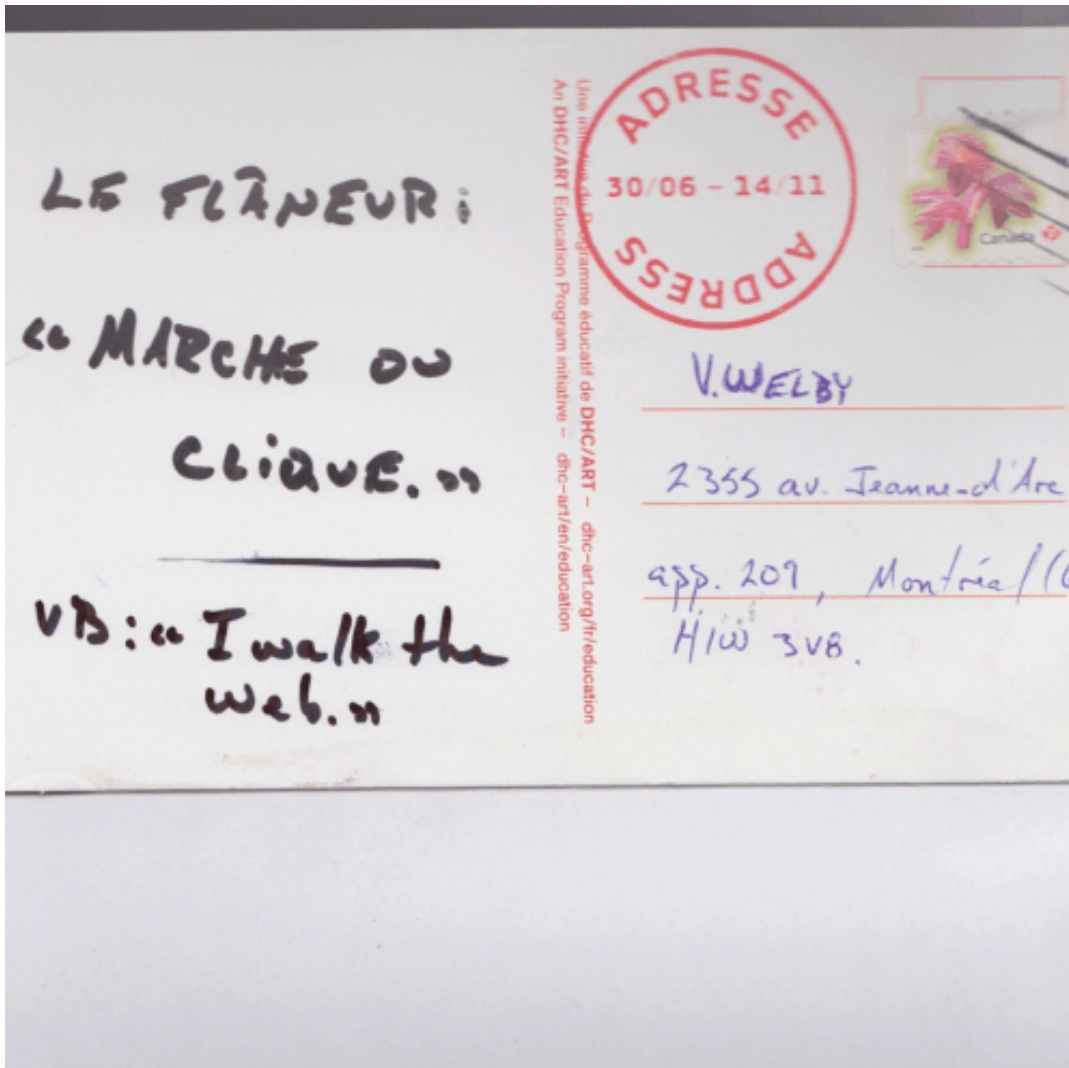 LE FLÂNEUR :
« MARCHE OU
CLIQUE. »
VB : « I walk the
web. »
Une initiative du Programme éducatif de DHC/ART – dhc-art.org/fr/education
An DHC/ART Education Program initiative – dhc-art/en/education
ADRESSE
30/06 – 14/11
ADDRESS
Canada
P
V. WELBY
2355 av. Jeanne-d'Arc
app. 209, Montréal
H1W 3V8.